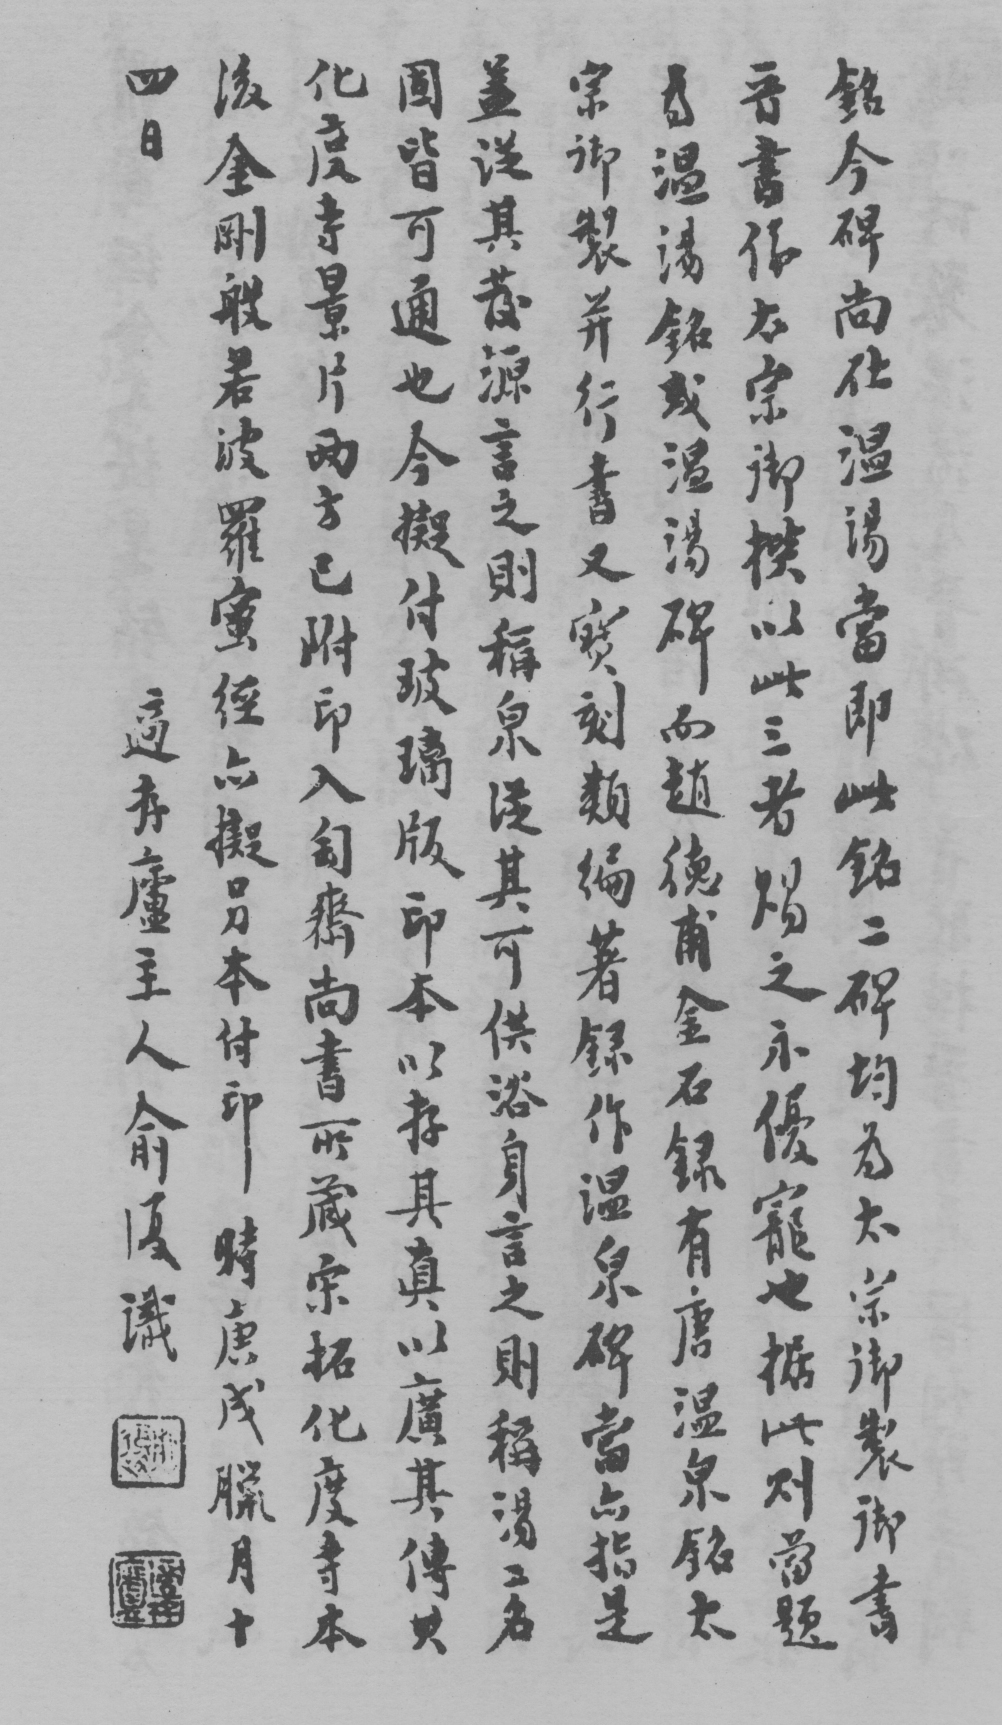 銘今碑尚在温湯當即此銘二碑均为太宗御製御書
晋書係太宗御撰以此三者賜之示優寵也據此則當題
为温湯銘或温湯碑而趙德甫金石録有唐温泉銘太
宗御製并行書又寳刻類編著録作温泉碑當亦指是
盖從其發源言之則稱泉從其可供浴身言之則稱湯二名
固皆可通也今擬付玻璃版印本以存其真以廣其傳其
化度寺景片兩方已附印入匋齋尚書所藏宋拓化度寺本
後金剛般若波羅蜜經亦擬另本付印 時庚戌臘月十
四日
適存廬主人俞復識